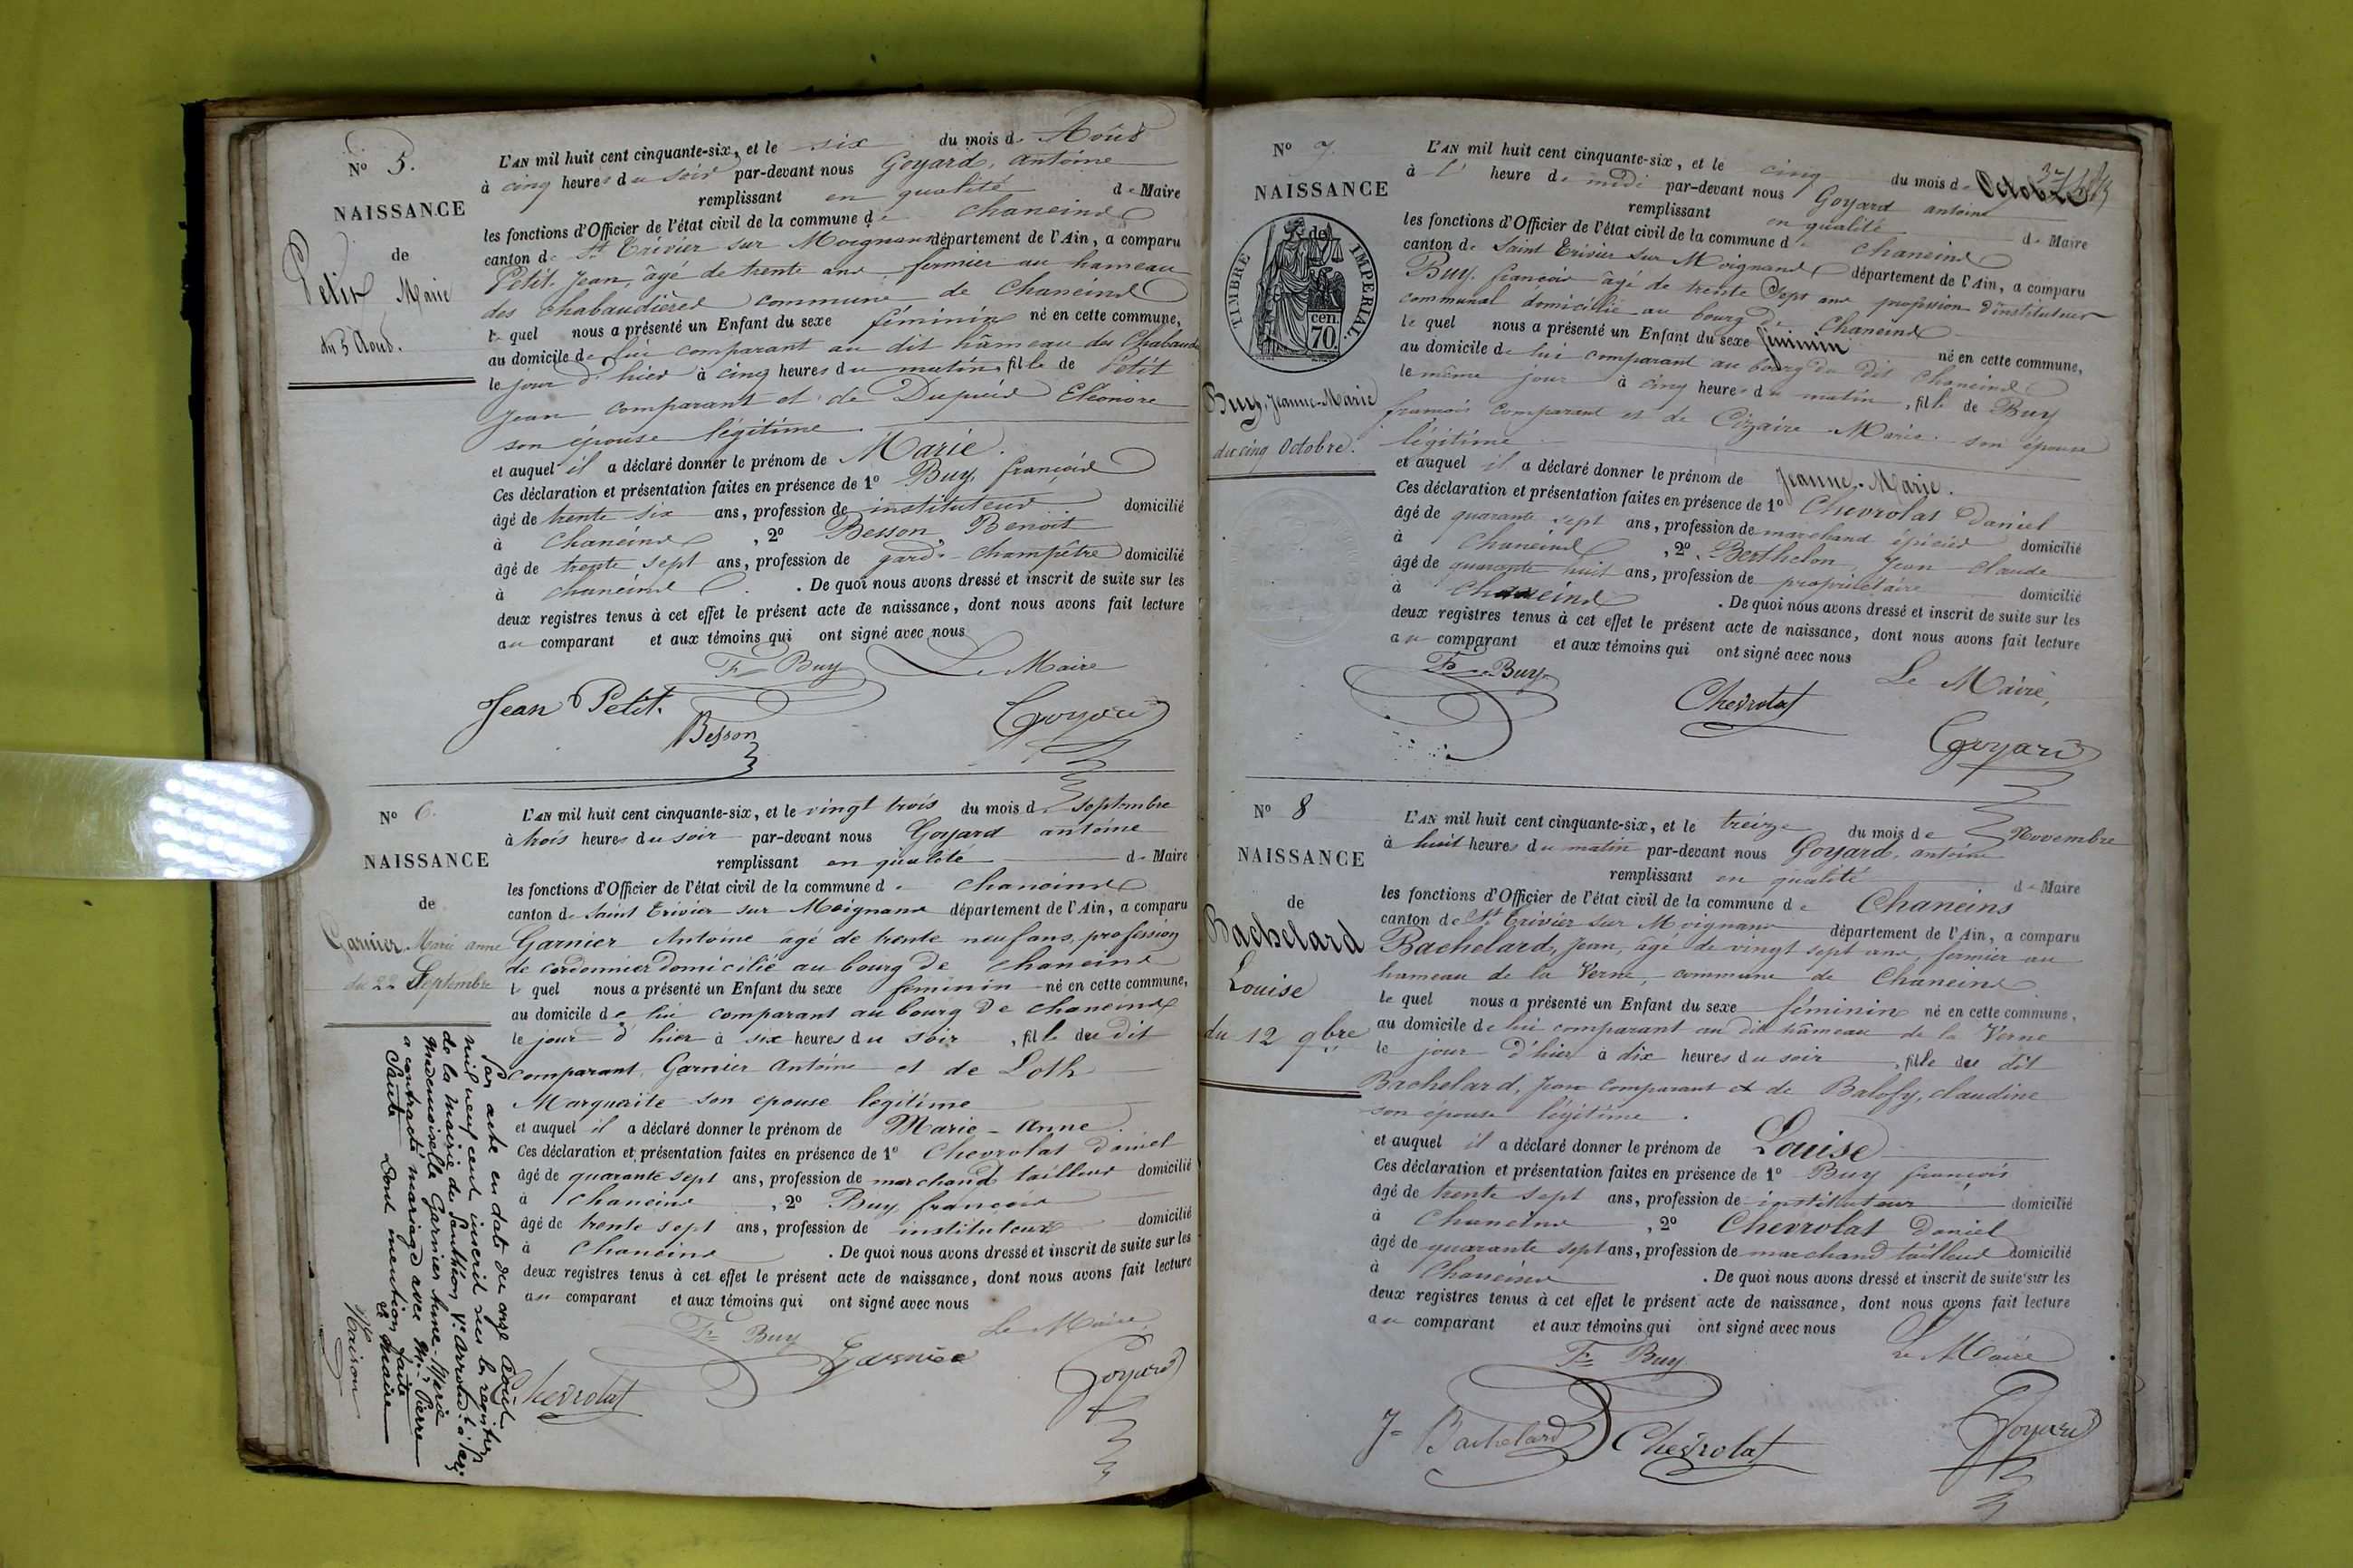 N° 5.
NAISSANCE
de
Petit Marie
du 5 Août.
L'AN mil huit cent cinquante-six, et le six du mois d' Août
à cinq heures du soir par-devant nous Goyard, antoine
remplissant en qualité de Maire
les fonctions d'Officier de l'état civil de la commune de Chaneins
canton de St Trivier sur Moignans département de l'Ain, a comparu
Petit, Jean, âgé de trente ans, fermier au hameau
des Chabaudières commune de Chaneins
le quel nous a présenté un Enfant du sexe féminin né en cette commune,
au domicile de lui comparant au dit hâmeau des Chabaud
le jour d'hier à cinq heures du matin, fille de Petit
Jean comparant et de Dupuis Eléonore
son épouse légitime.
et auquel il a déclaré donner le prénom de Marie.
Ces déclaration et présentation faites en présence de 1° Buy, françois
âgé de trente six ans, profession de instituteur domicilié
à Chaneins, 2° Besson, Benoit
âgé de trente sept ans, profession de garde-champêtre domicilié
à chaneins. De quoi nous avons dressé et inscrit de suite sur les
deux registres tenus à cet effet le présent acte de naissance, dont nous avons fait lecture
au comparant et aux témoins qui ont signé avec nous
F Buy Le Maire
Jean Petit.
Besson Goyard
N° 6.
NAISSANCE
de
Garnier Marie anne
du 22 Septembre
L'AN mil huit cent cinquante-six, et le vingt trois du mois de septembre
à trois heures du soir par-devant nous Goyard antoine
remplissant en qualité de Maire
les fonctions d'Officier de l'état civil de la commune de chaneins
canton de Saint Trivier sur Moignans département de l'Ain, a comparu
Garnier Antoine âgé de trente neuf ans, profession
de cordonnier domicilié au bourg de chaneins
le quel nous a présenté un Enfant du sexe féminin né en cette commune,
au domicile de lui comparant au bourg de chaneins
le jour d'hier à six heures du soir, fille du dit
comparant, Garnier Antoine et de Loth
Marguerite son epouse legitime
et auquel il a déclaré donner le prénom de Marie-anne.
Ces déclaration et présentation faites en présence de 1° Chevrolat Daniel
âgé de quarante sept ans, profession de marchand tailleur domicilié
à chaneins, 2° Buy françois
âgé de trente sept ans, profession de instituteur domicilié
à Chaneins. De quoi nous avons dressé et inscrit de suite sur les
deux registres tenus à cet effet le présent acte de naissance, dont nous avons fait lecture
au comparant et aux témoins qui ont signé avec nous
Fs Buy Le Maire,
Garnier
Chevrolat Goyard
Par acte en date du onze Août
mil neuf cent inscrit sur les registres
de la mairie du Panthéon Ve Arrond.t à Paris
Mademoiselle Garnier Anne-Marie
a contracté mariage avec Mr Pierre
Dont mention faite
Le Maire
N° 7.
NAISSANCE
de
TIMBRE IMPERIAL.
70 cen.
Buy, Jeanne-Marie
du cinq Octobre.
L'AN mil huit cent cinquante-six, et le cinq du mois d' Octobre
à l' heure de midi par-devant nous Goyard antoine
remplissant en qualité de Maire
les fonctions d'Officier de l'état civil de la commune de chaneins
canton de Saint Trivier sur Moignans département de l'Ain, a comparu
Buy, françois âgé de trente sept ans profession d'instituteur
communal domicilié au bourg de Chaneins
le quel nous a présenté un Enfant du sexe féminin né en cette commune,
au domicile de lui comparant au bourg du dit Chaneins
le même jour à cinq heures du matin, fille de Buy
francois comparant et de Cizaire Marie son épouse
légitime
et auquel il a déclaré donner le prénom de Jeanne-Marie.
Ces déclaration et présentation faites en présence de 1° Chevrolat Daniel
âgé de quarante sept ans, profession de marchand épicier domicilié
à Chaneins, 2° Berthelon, Jean-claude
âgé de quarante huit ans, profession de propriétaire domicilié
à Chaneins. De quoi nous avons dressé et inscrit de suite sur les
deux registres tenus à cet effet le présent acte de naissance, dont nous avons fait lecture
au comparant et aux témoins qui ont signé avec nous
Fs Buy Le Maire,
Chevrolat
Goyard
N° 8
NAISSANCE
de
Bachelard
Louise
du 12 9bre
L'AN mil huit cent cinquante-six, et le treize du mois de Novembre
à huit heures du matin par-devant nous Goyard, antoine
remplissant en qualité de Maire
les fonctions d'Officier de l'état civil de la commune de Chaneins
canton de St Trivier sur Moignans département de l'Ain, a comparu
Bachelard, Jean, âgé de vingt sept ans, fermier au
hameau de la Verne, commune de Chaneins
le quel nous a présenté un Enfant du sexe féminin né en cette commune,
au domicile de lui comparant au dit hâmeau de la Verne
le jour d'hier à dix heures du soir, fille du dit
Bachelard, Jean comparant et de Balofy, claudine
son épouse légitime.
et auquel il a déclaré donner le prénom de Louise
Ces déclaration et présentation faites en présence de 1° Buy françois
âgé de trente sept ans, profession de instituteur domicilié
à Chaneins, 2° Chevrolat Daniel
âgé de quarante sept ans, profession de marchand tailleur domicilié
à Chaneins. De quoi nous avons dressé et inscrit de suite sur les
deux registres tenus à cet effet le présent acte de naissance, dont nous avons fait lecture
au comparant et aux témoins qui ont signé avec nous
Fs Buy Le Maire
J- Bachelard Chevrolat Goyard